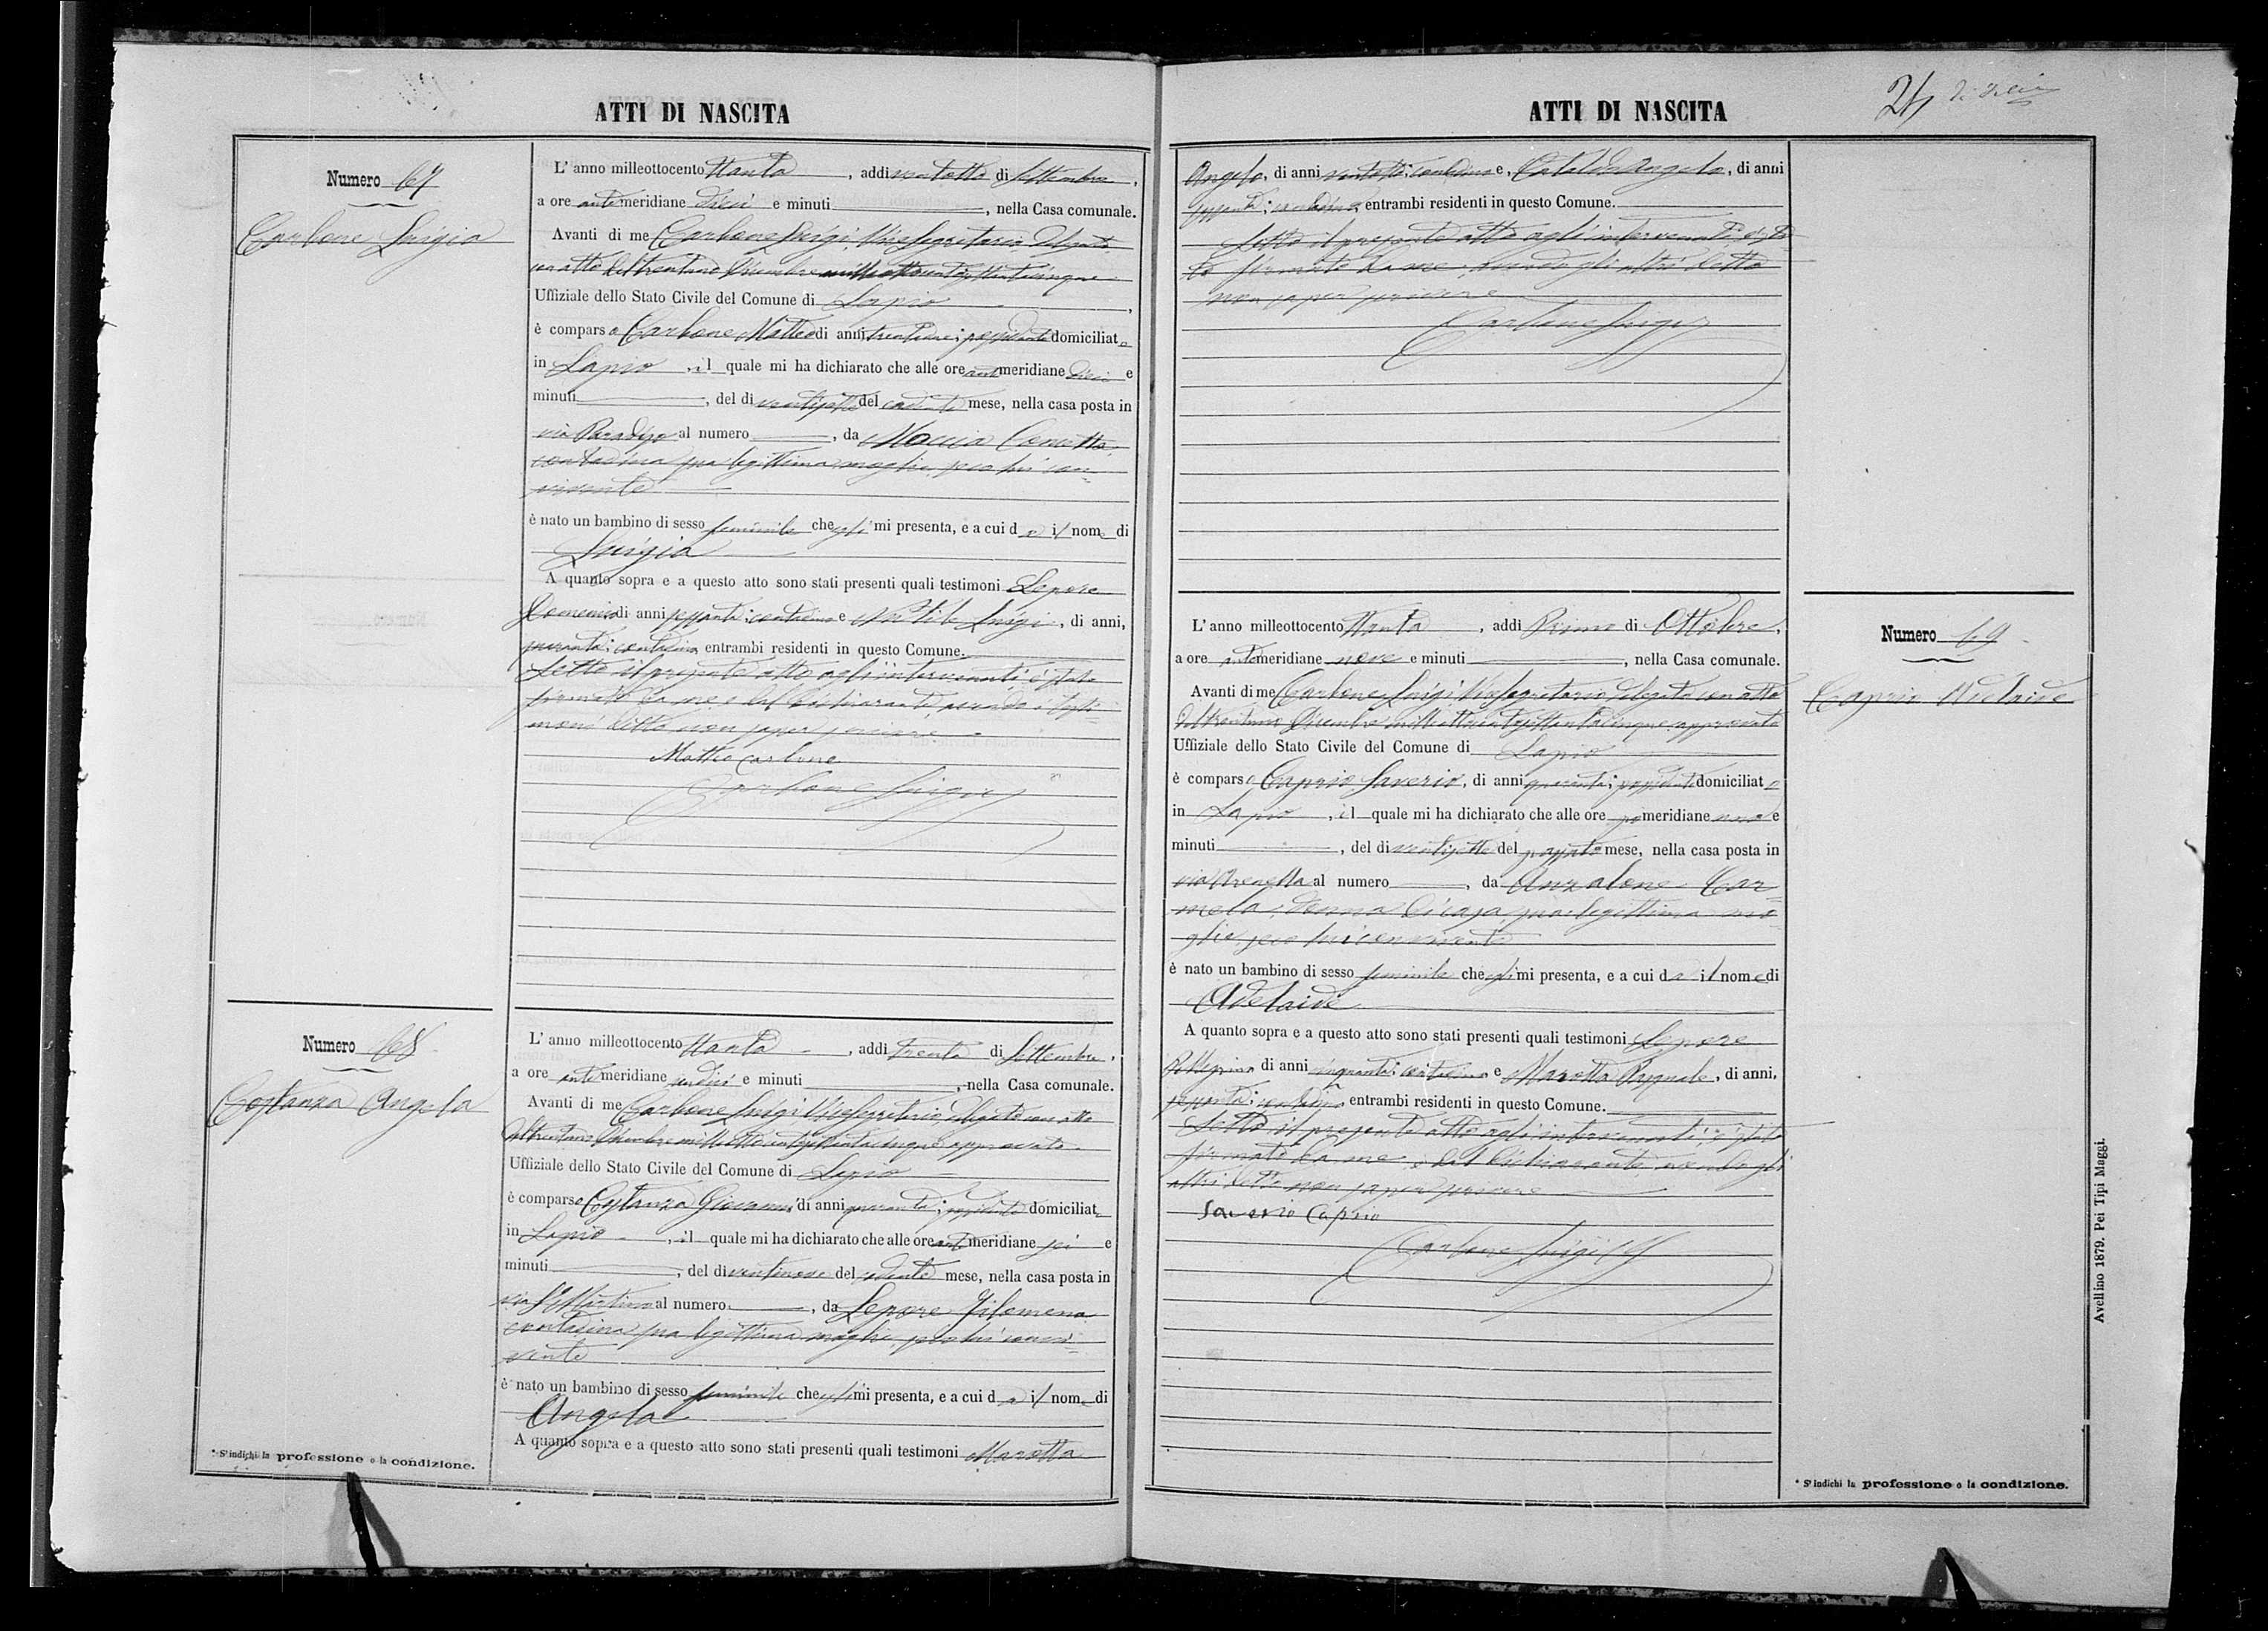 ATTI DI NASCITA
Numero 67
Carbone Luigia
L' anno milleottocento ottanta, addi ventotto di Settembre,
a ore antimeridiane dieci e minuti, nella Casa comunale.
Avanti di me Carbone Luigi Vice Segretario delegato
con atto del trentuno Dicembre milleottocentosettantacinque
Uffiziale dello Stato Civile del Comune di Lapio,
è comparso Carbone Matteo di anni; possidente domiciliato
in Lapio, il quale mi ha dichiarato che alle ore antimeridiane dieci e
minuti, del di ventisette del cadente mese, nella casa posta in
via Paradiso al numero, da Moccia Concetta
contadina sua legittima moglie, seco lui con=
vivente
è nato un bambino di sesso feminile che egli mi presenta, e a cui dà il nome di
Luigia
A quanto sopra e a questo atto sono stati presenti quali testimoni Lepore
Domenico di anni sessanta; contadino e Luigi, di anni,
quaranta; contadino, entrambi residenti in questo Comune.
Letto il presente atto agli intervenuti è stato
firmato da me e dal dichiarante, avendo i testi=
moni detto non saper scrivere
Matteo Carbone
Carbone Luigi
Numero 68
Costanza Angela
L' anno milleottocento ottanta, addi trenta di Settembre,
a ore antimeridiane undici e minuti, nella Casa comunale.
Avanti di me Carbone Luigi Vice Segretario, delegato con atto
del trentuno Dicembre milleottocentosettantacinque approvato
Uffiziale dello Stato Civile del Comune di Lapio
è comparso Costanza Giovanni di anni quaranta; possidente domiciliato
in Lapio, il quale mi ha dichiarato che alle ore antimeridiane sei e
minuti, del di ventinove del cadente mese, nella casa posta in
via S. Martino al numero, da Lepore Filomena
contadina sua legittima moglie, seco lui convi=
vente
è nato un bambino di sesso feminile che egli mi presenta, e a cui dà il nome di
Angela
A quanto sopra e a questo atto sono stati presenti quali testimoni Marotta
* S' indichi la professione o la condizione.
ATTI DI NASCITA
24
Angelo, di anni ventotto; contadino e, Cataldo Angelo, di anni
sessanta; contadino, entrambi residenti in questo Comune.
Letto il presente atto agli intervenuti, è sta
to firmato da me, avendo gli altri detto
non saper scrivere
Carbone Luigi
L' anno milleottocento ottanta, addi Primo di Ottobre,
a ore antimeridiane nove e minuti, nella Casa comunale.
Avanti di me Carbone Luigi Vice Segretario, delegato con atto
del trentuno Dicembre milleottocentosettantacinque approvato
Uffiziale dello Stato Civile del Comune di Lapio
è comparso Caprio Saverio, di anni quaranta; possidente domiciliato
in Lapio, il quale mi ha dichiarato che alle ore pomeridiane nove e
minuti, del di ventisette del passato mese, nella casa posta in
via al numero, da Anzalone Car=
mela, donna di casa, sua legittima mo
glie, seco lui convivente
è nato un bambino di sesso feminile che egli mi presenta, e a cui dà il nome di
Adelaide
A quanto sopra e a questo atto sono stati presenti quali testimoni Lepore
Pellegrino di anni cinquanta; contadino e Marotta Pasquale, di anni,
sessanta; contadino, entrambi residenti in questo Comune.
Letto il presente atto agli intervenuti, è stato
firmato da me e dal dichiarante, avendo gli
altri detto non saper scrivere
Saverio Caprio
Carbone Luigi
Numero 69
Caprio Adelaide
* S' indichi la professione o la condizione.
Avellino 1879. Pei Tipi Maggi.